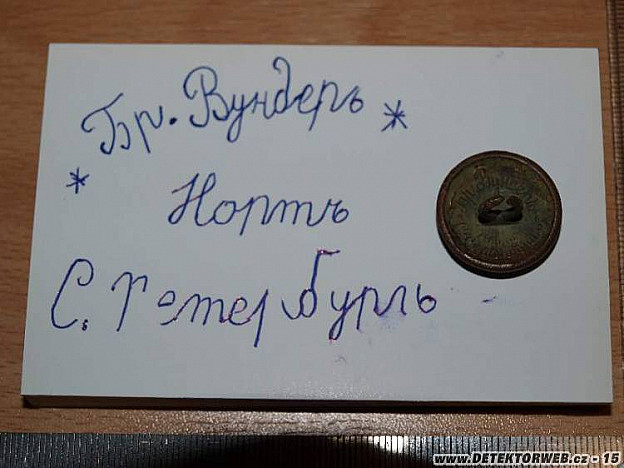 Бр. Вундеръ *
* Нортъ
С. Петербургъ
www.DETEKTORWEB.cz - 15